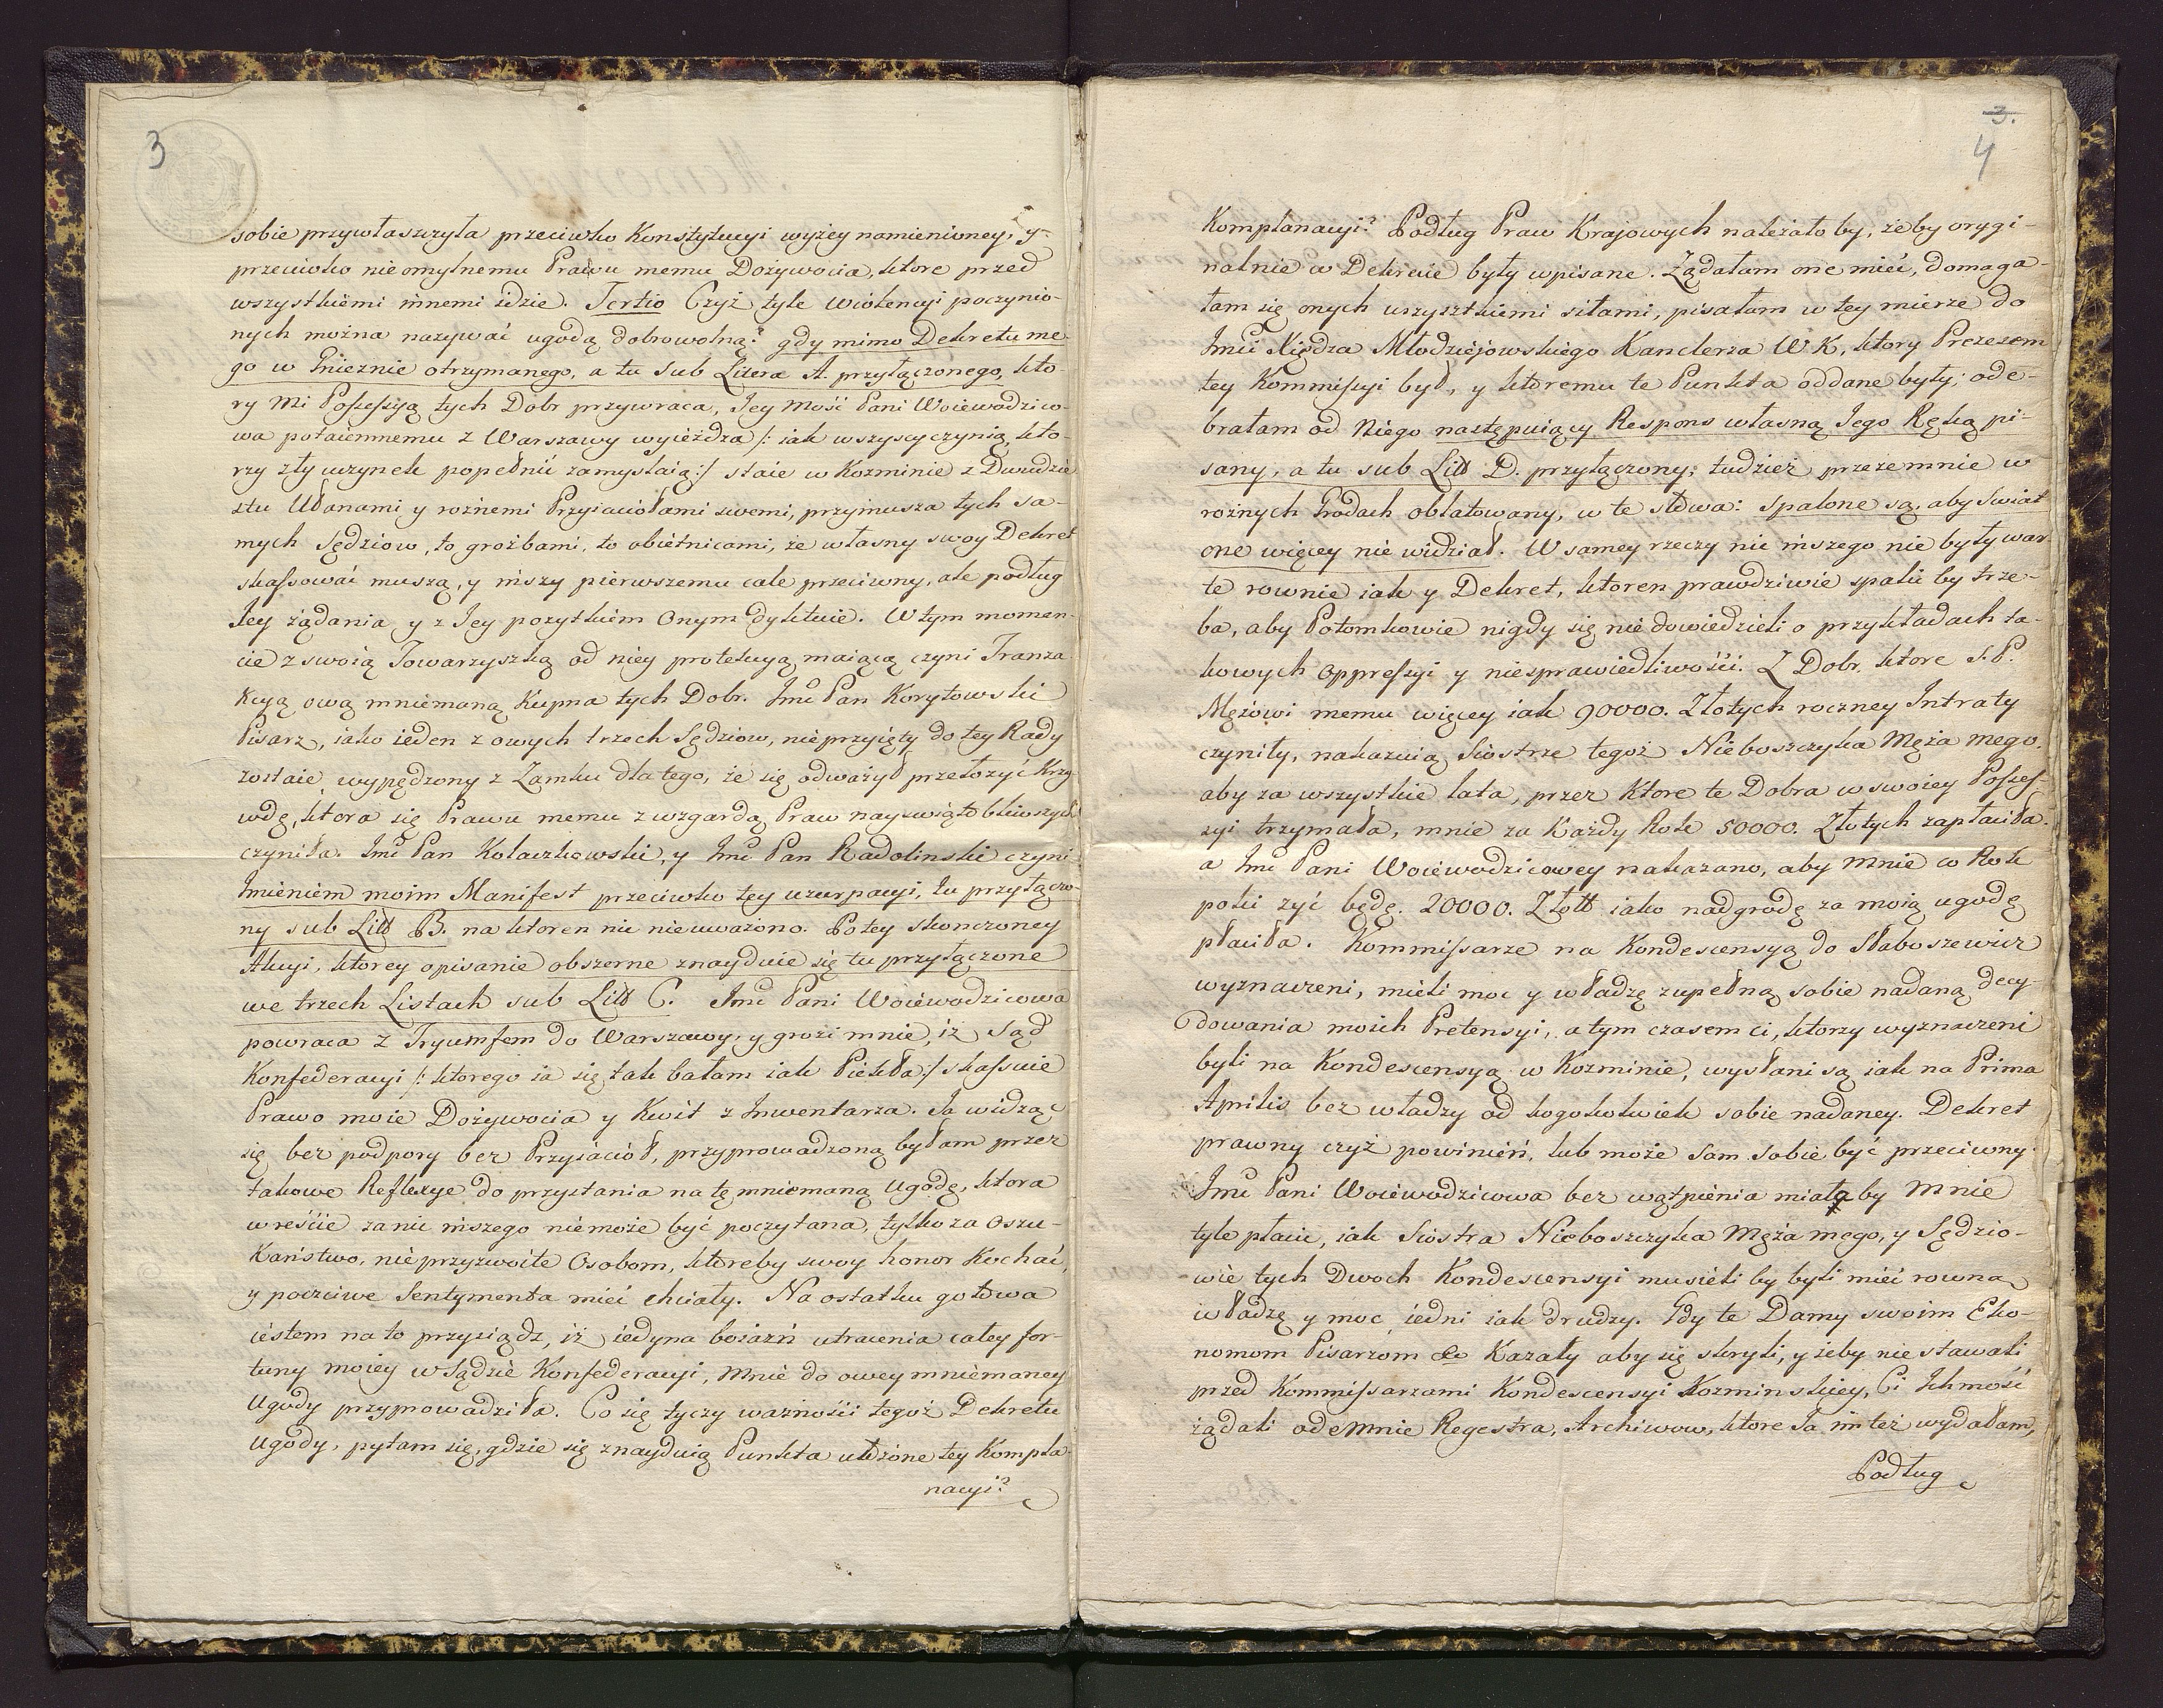 3
sobie przywłaszczyła przeciwko Konstytucyi wyżey namienioney, y
przeciwko nieomylnemu Prawu memu Dożywocia, ktore przed
wszystkiemi innemi idzie. Tertio Czyż tyle wiolencyi poczynio-
nych można nazywać ugodą dobrowolną? gdy mimo Dekretu me
go w Gnieznie otrzymanego, a tu sub Litera A. przyłączonego, kto-
ry mi Possessyą tych Dobr przywraca, Jey Mość Pani Woiewodzico-
wa potaiemnemu z Warszawy wyieżdza /: iak wszyscy czynią, kto-
rzy zły uczynek popełnić zamyslaią :/ staie w Kozminie z Dwudzie
stu Ułanami y rożnemi Przyiaciołami swemi, przyimusza tych sa-
mych Sędziow, to groźbami, to obietnicami, że własny swoy Dekret
skassować muszą, y inszy pierwszemu cale przeciwny, ale podług
Jey żądania y z Jey pozytkiem onym dyktuie. W tym momen-
cie z swoią Towarzyszką od niey protekcyą maiącą czyni Tranza
kcyą ową mniemaną Kupna tych Dobr. Jmć Pan Korytowski
Pisarz, iako ieden z owych trzech Sędziow, nie przyięty do tey Rady
zostaie, wypędzony z Zamku dla tego, że się odważył przełożyć Krzy-
wdę, ktora się Prawu memu z wzgardą Praw nayswiątobliwszych
czyniła. Jmć Pan Kołaczkowski, y Jmć Pan Radolinski czyni
Jmieniem moim Manifest przeciwko tey uzurpacyi, tu przyłączo-
ny sub Litt B. na ktoren nic nie uważono. Po tey skonczoney
Akcyi, ktorey opisanie obszerne znayduie się tu przyłączone
we trzech Listach sub Litt C. Jmć Pani Woiewodzicowa
powraca z Tryumfem do Warszawy, y grozi mnie, iż Sąd
Konfederacyi /: ktorego ia się tak bałam iak Piekła :/ skassuie
Prawo moie Dożywocia y Kwit z Inwentarza. Ja widząc
się bez podpory bez Przyiaciół, przyprowadzoną byłam przez
takowe Reflexye do przystania na tę mniemaną Ugodę, ktora
w reście za nic inszego nie może być poczytana, tylko za Oszu-
Kaństwo, nieprzyzwoite Osobom, ktoreby swoy honor Kochać,
y poczciwe Sentymenta mieć chciały. Na ostatku gotowa
iestem na to przysiądz, iż iedyna boiazń utracenia całey for-
tuny moiey w Sądzie Konfederacyi, mnie do owey mniemaney
Ugody przyprowadziła. Co się tyczy ważności tegoż Dekretu
Ugody, pytam się, gdzie się znayduią Punkta ułożone tey Kompla-
nacyi?
3.
4
Komplanacyi? Podług Praw Krajowych należało by, żeby orygi-
nalnie w Dekrecie były wpisane. Żądałam one mieć, domaga-
łam się onych wszysztkiemi siłami, pisałam w tey mierze do
Jmći Xiędza Młodziejowskiego Kanclerza W K, ktory Prezesem
tey Kommissyi był, y ktoremu te Punkta oddane były; ode-
brałam od Niego następuiący Respons własną Jego Ręką pi-
sany, a tu sub Litt D. przyłączony; tudzież przezemnie w
rożnych Grodach oblatowany, w te słowa: Spalone są, aby Swiat
one więcey nie widział. W samey rzeczy nic inszego nie były war
te rownie iak y Dekret, ktoren prawdziwie spalić by trze-
ba, aby Potomkowie nigdy się nie dowiedzieli o przykładach ta-
kowych oppressyi y niesprawiedliwości. Z Dobr, ktore S. P.
Mężowi memu więcey iak 90000. Złotych roczney Intraty
czyniły, nakazuią Siostrze tegoż Nieboszczyka Męża mego,
aby za wszystkie lata, przez Ktore te Dobra w swoiey Posses-
syi trzymała, mnie za Każdy Rok 50000. Złotych zapłaciła.
a Jmć Pani Woiewodzicowey nakazano, aby mnie co Rok
poki żyć będę. 20000. Złott iako nadgrodę za moią ugodę
płaciła. Kommissarze na Kondescensyą do Słaboszewicz
wyznaczeni, mieli moc y władzę zupełną sobie nadaną decy-
dowania moich Pretensyi, a tym czasem ci, ktorzy wyznaczeni
byli na Kondescensyą w Kozminie, wysłani są iak na Prima
Aprilis bez władzy od kogokolwiek sobie nadaney. Dekret
prawny czyż powinień, lub może sam sobie być przeciwny
Jmć Pani Woiewodzicowa bez wątpienia miałaby mnie
tyle płacić, iak Siostra Nieboszczyka Męża mego, y Sędzio-
wie tych Dwoch Kondescensyi musieli by byli mieć rowną
władzę y moc, iedni iak drudzy. Gdy te Damy swoim Eko-
nomom Pisarzom &c Kazały aby się skryli, y żeby nie stawali
przed Kommissarzami Kondescensyi Kozminskiey, Ci Ichmość
żądali odemnie Regestra, Archiwow, ktore Ja im też wydałam,
Podług